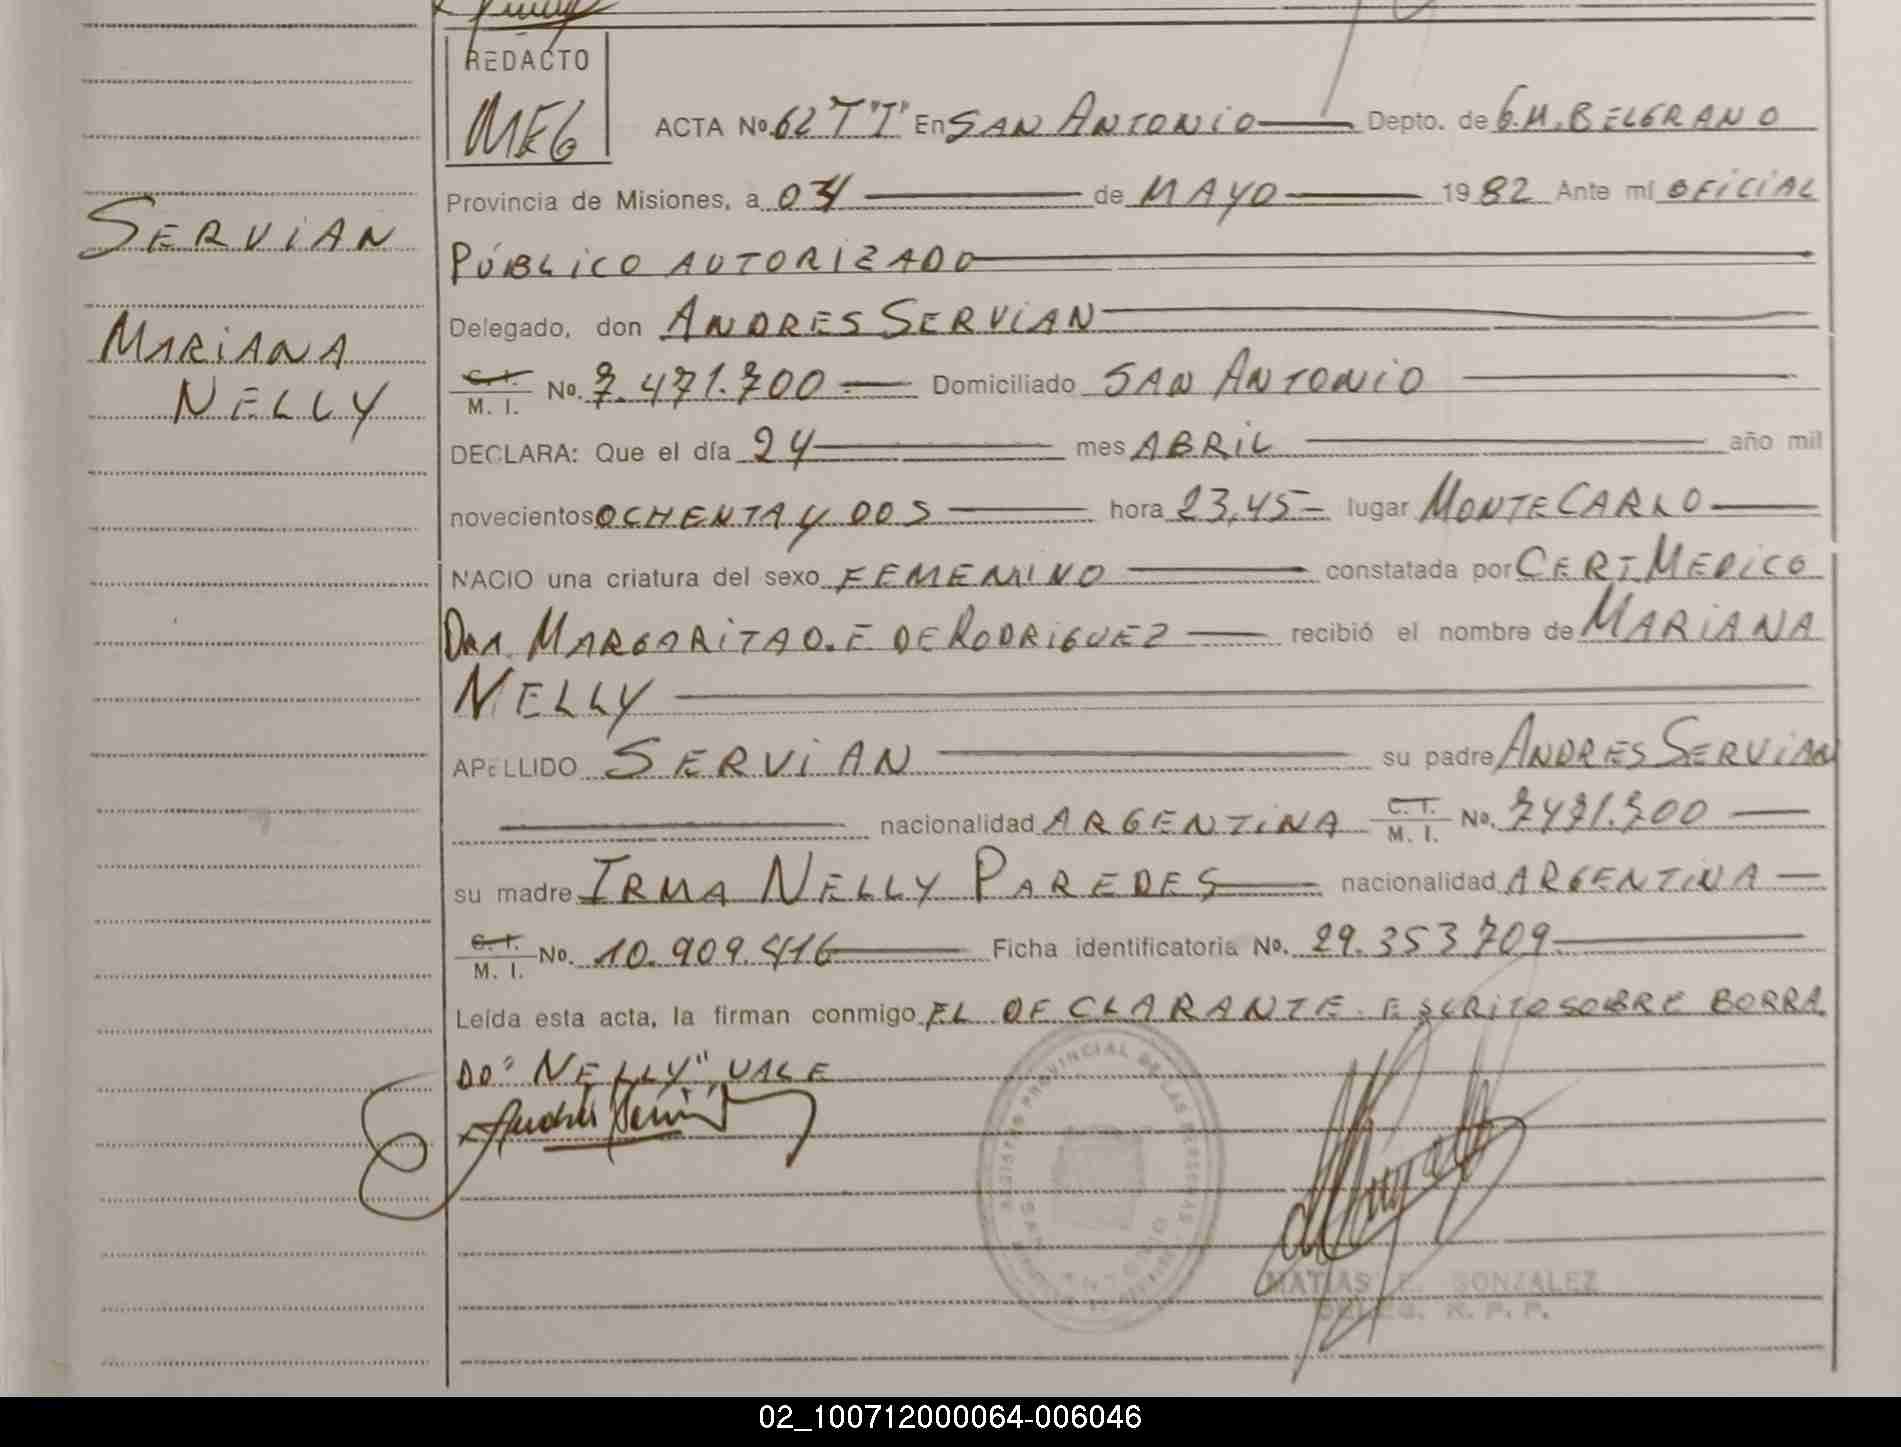 REDACTO
MEG
ACTA No. 62 T "I" En SAN ANTONIO Depto. de G.M. BELGRANO
Provincia de Misiones, a 04 de MAYO 1982 Ante mí OFICIAL
PÚBLICO AUTORIZADO
Delegado, don ANDRES SERVIAN
C. I. M. I. No. 7.471.700 Domiciliado SAN ANTONIO
DECLARA: Que el día 24 mes ABRIL año mil
novecientos OCHENTA Y DOS hora 23,45 lugar MONTECARLO
NACIO una criatura del sexo FEMENINO constatada por CERT MEDICO
DRA. MARGARITA O. F. DE RODRIGUEZ recibió el nombre de MARIANA
NELLY
APELLIDO SERVIAN su padre ANDRES SERVIAN
nacionalidad ARGENTINA C. I. M. I. No. 7471.700
su madre IRMA NELLY PAREDES nacionalidad ARGENTINA
C. I. M. I. No. 10.909.416 Ficha identificatoria No. 29.353.709
Leída esta acta, la firman conmigo EL DECLARANTE. ESCRITO SOBRE BORRA
DO "NELLY" VALE
SERVIAN
MARIANA
NELLY
REGISTRO PROVINCIAL DE LAS PERSONAS
SAN ANTONIO
MATIAS GONZALEZ
DELEG. R. P. P.
02_100712000064-006046